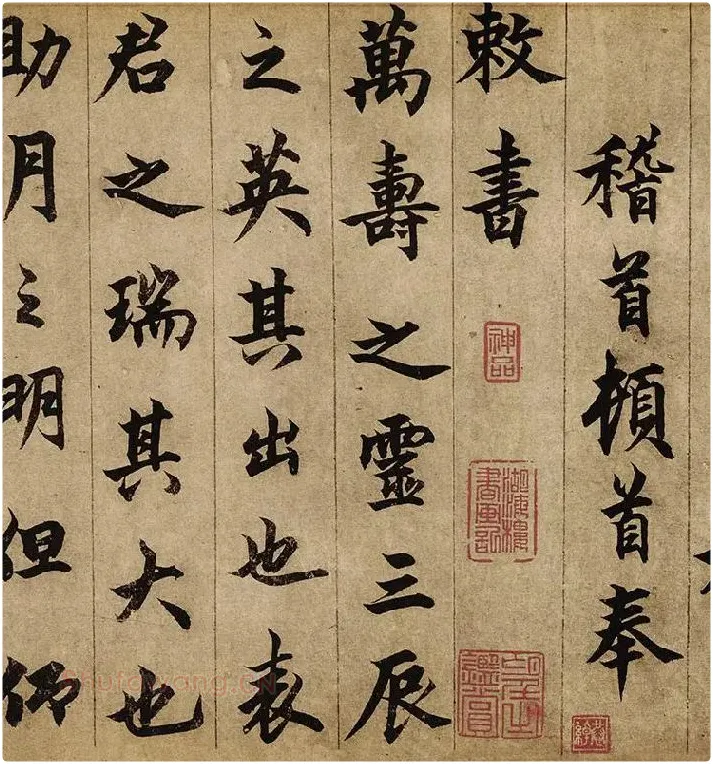 稽首頓首奉
敕書
神品
萬壽之靈三辰
之英其出也表
君之瑞其大也
助月之明但仰
Shufawang.CN